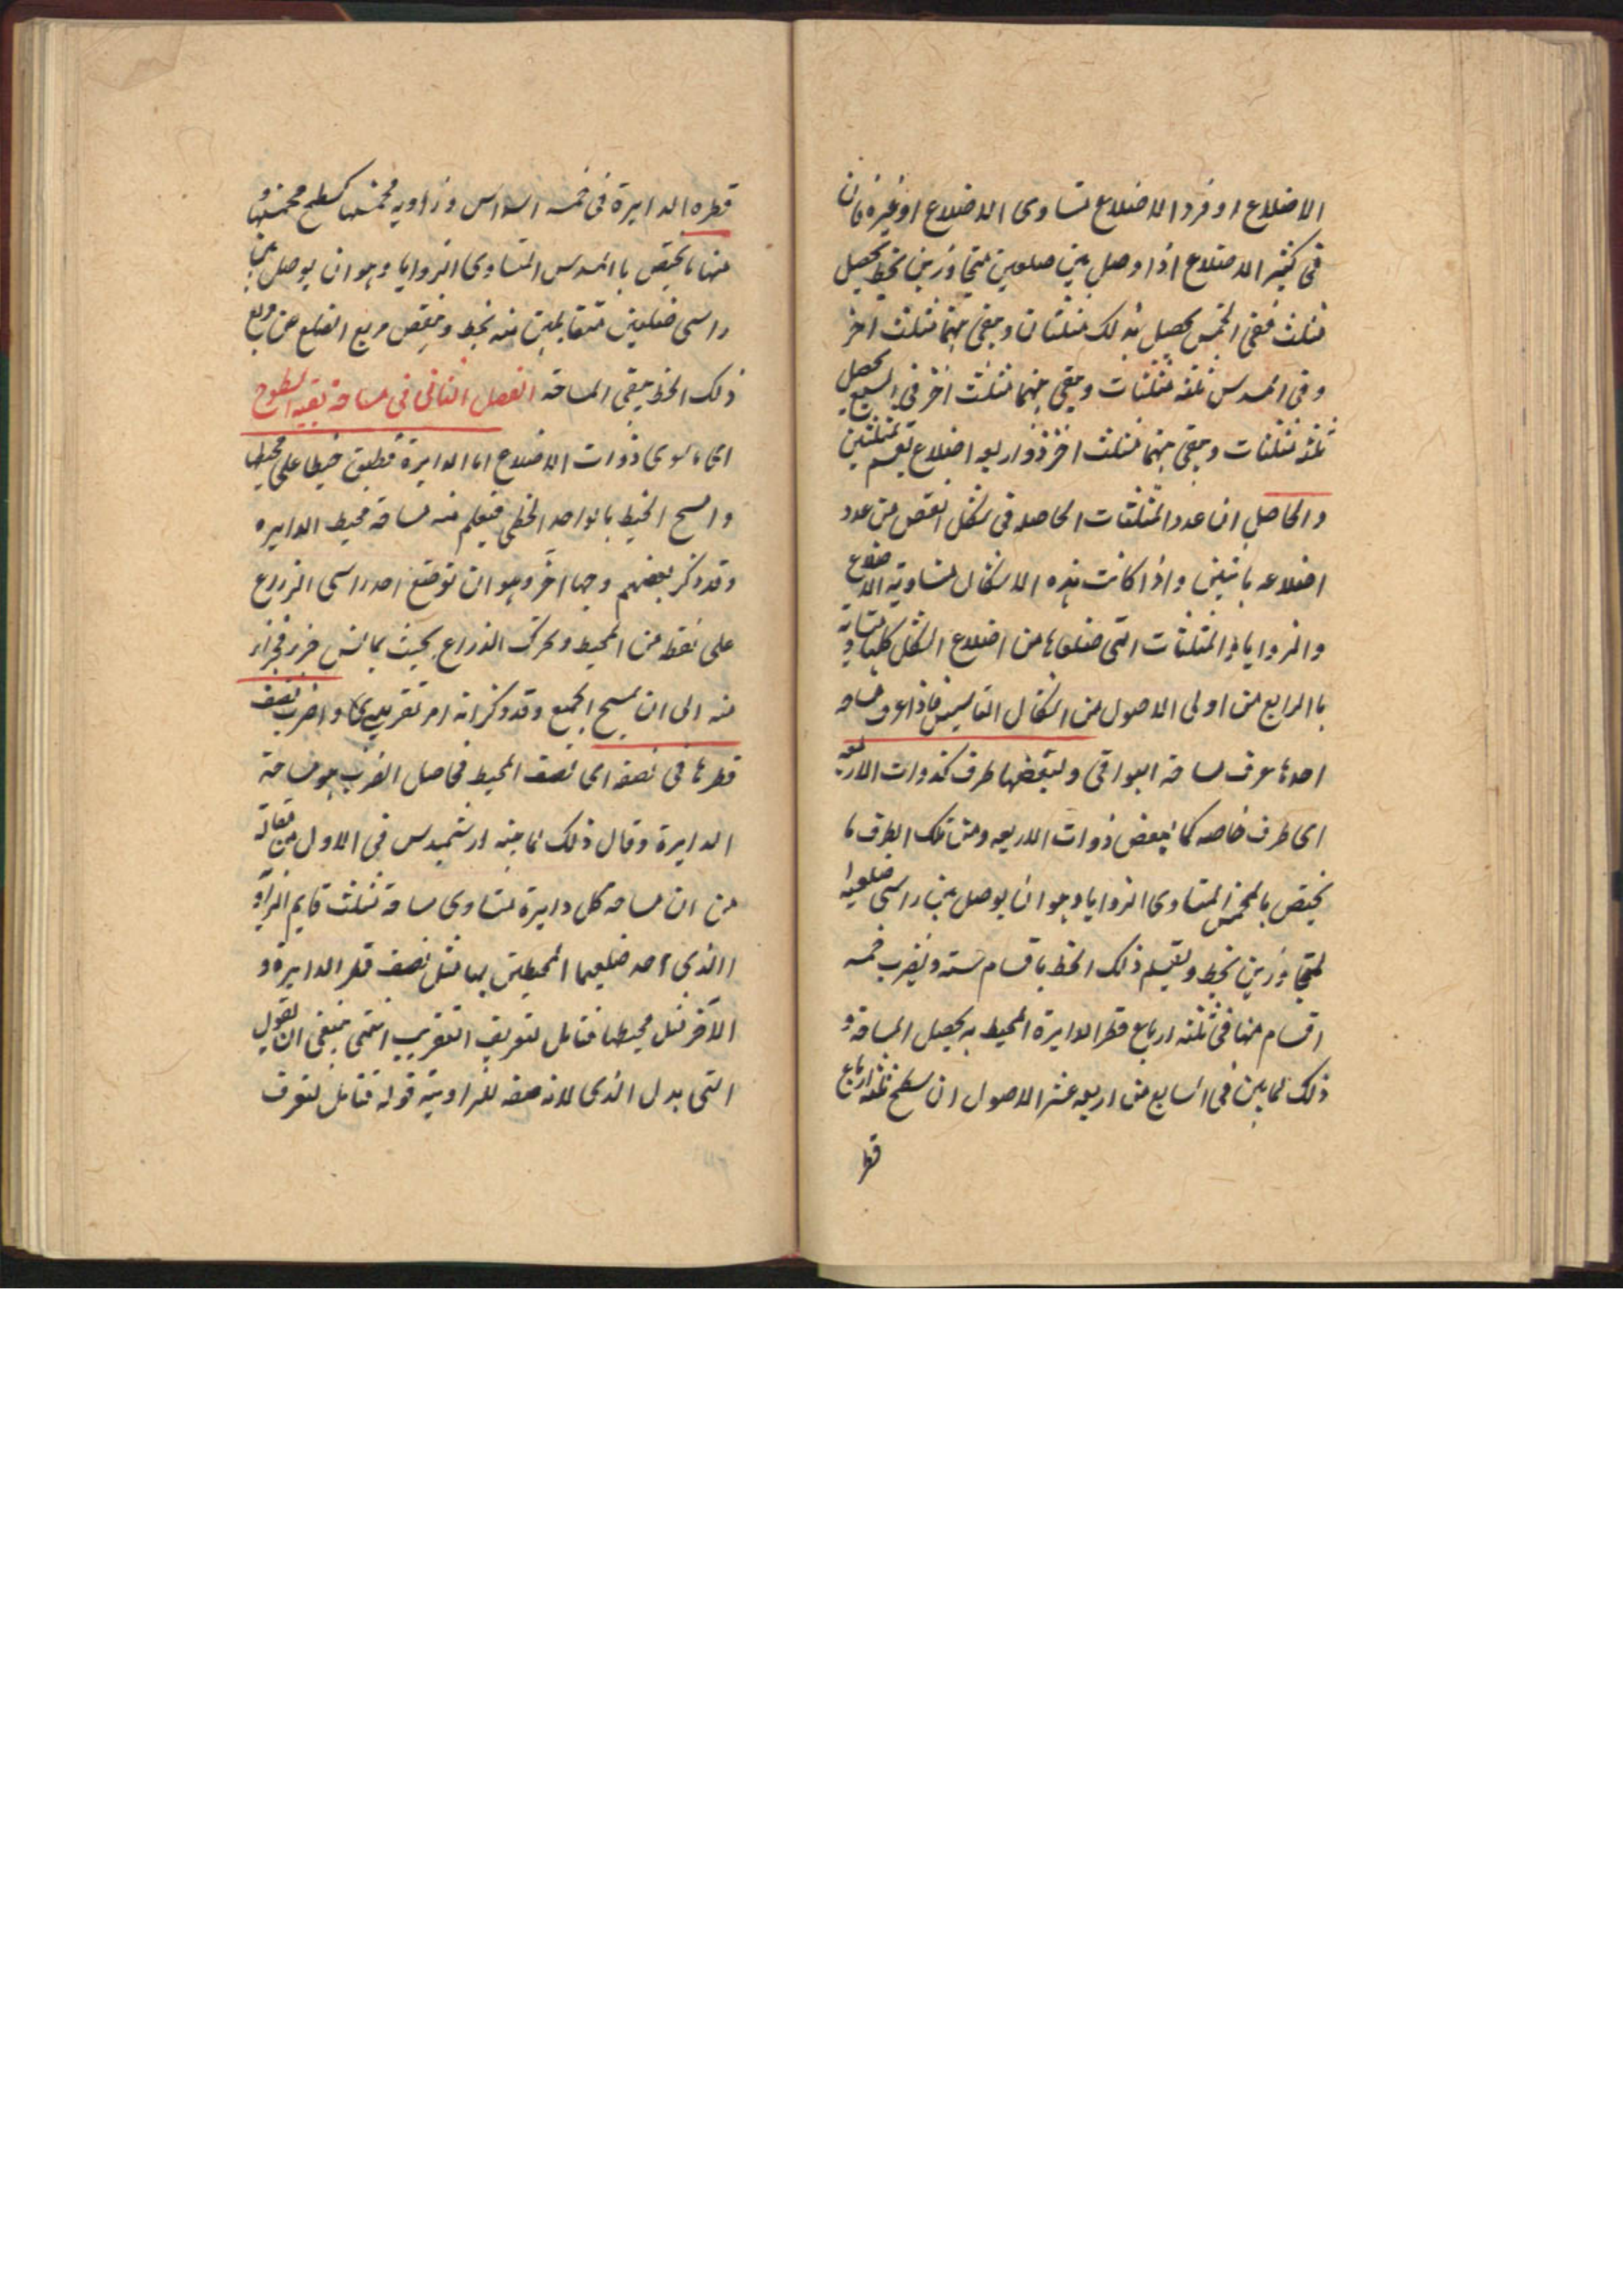 الاضلاع او فرد الاضلاع تساوى الاضلاع او غيره فان
فى كثير الاضلاع اذا وصل بين ضلعين متجاورين بخط يحصل
مثلث ففى المخمس يحصل بذلك مثلثان ويبقى بينهما مثلث اخر
وفى المسدس ثلثة مثلثات ويبقى بينهما مثلث اخر فى المسبع يحصل
ثلثة مثلثات ويبقى بينهما مثلث اخر ذو اربعه اضلاع يقسم بمثلثين
والحاصل ان عدد المثلثات الحاصله فى شكل انقص من عدد
اضلاعه باثنين واذا كانت هذه الاشكال متساوية الاضلاع
والزوايا فالمثلثات التى ضلعاها من اضلاع الشكل كلها متساوية
بالرابع من اولى الاصول من اشكال التاسيس فاذا عرف مساحه
احدها عرف مساحة البواقى ولبعضها طرف كذوات الاربعه
اى طرف خاصه كما لبعض ذوات الاربعه ومن تلك الطرف ما
يختص بالمخمس المتساوى الزوايا وهو ان يوصل بين راسى ضلعيه ا
لمتجاورين بخط ويقسم ذلك الخط باقسام ستة ويضرب خمسه
اقسام منها فى ثلثه ارباع قطر الدايرة المحيط به يحصل المساحة و
ذلك لما بين فى السابع من اربعه عشر الاصول ان سطح ثلثه ارباع
قطر
قطره الدايرة فى خمسه اسداس وزاويه مخمسها كسطح مخمسها و
منها ما يختص با المسدس المتساوى الزوايا وهو ان يوصل بين
راسى ضلعين متقابلين منه بخط وينقص مربع الضلع من مربع
ذلك الخط يبقى المساحة الفصل الثانى فى مساحة بقية السطوح
اى ما سوى ذوات الاضلاع اما الدايرة فطبق خيطا على محيطها
وامسح الخيط بالواحد الخطى فيعلم منه مساحة محيط الدايره
وقد ذكر بعضهم وجها اخر وهو ان توضع احد راسى الذراع
على نقطه من المحيط وتحرك الذراع بحيث يماس جزء فجزء
منه الى ان يمسح الجميع وقد ذكر انه امر تقريبى واضرب نصف
قطرها فى نصفه اى نصف المحيط فحاصل الضرب هو مساحة
الدايرة وقال ذلك لما بينه ارشميدس فى الاول من مقالة
من ان مساحة كل دايرة تساوى مساحة مثلث قايم الزاوية
االذى احد ضلعيها المحيطين بها مثل نصف قطر الدايرة و
الاخر مثل محيطها فتامل لتعريف التقريب انتهى ينبغى ان يقول
التى بدل الذى لانه صفه للزاوية قوله فتامل لتعرف